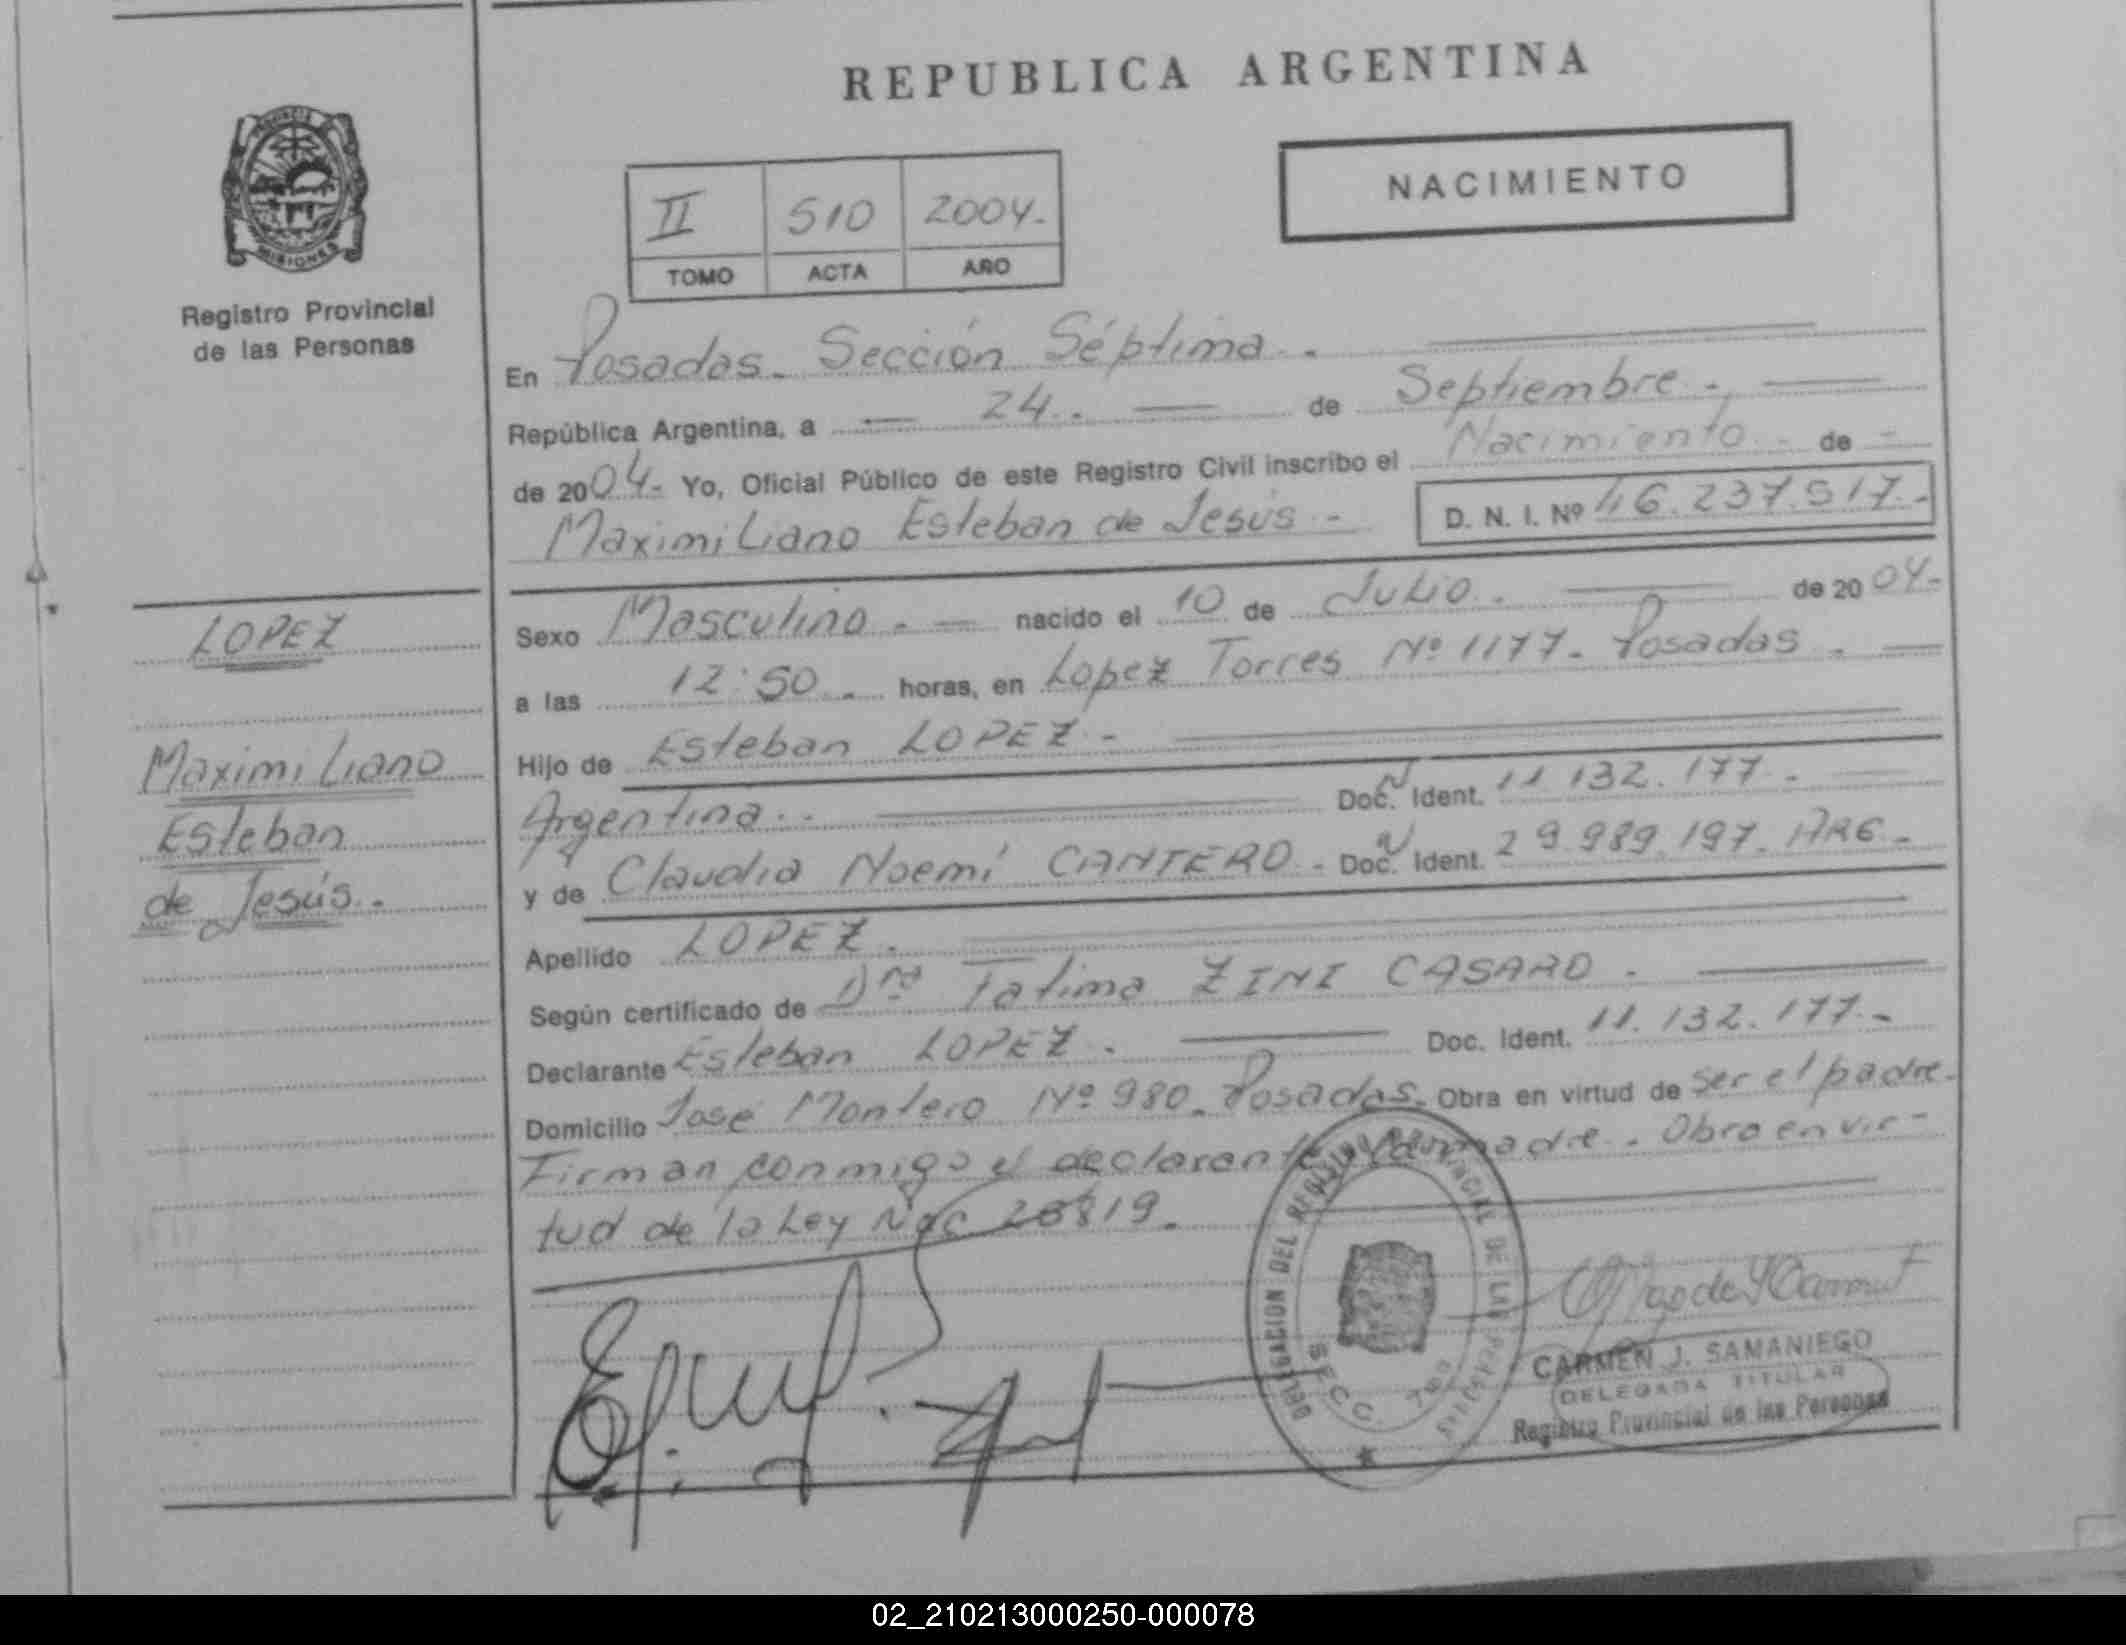 REPUBLICA ARGENTINA
NACIMIENTO
II 510 2004.-
TOMO ACTA AÑO
PROVINCIA DE
MISIONES
Registro Provincial
de las Personas
En Posadas. Sección Séptima.
República Argentina, a 24. de Septiembre.
de 2004.- Yo, Oficial Público de este Registro Civil inscribo el Nacimiento - de -
Maximiliano Esteban de Jesús - D. N. I. Nº 46.237.517.-
LOPEZ
Maximiliano
Esteban
de Jesús.-
Sexo Masculino.- nacido el 10 de Julio. de 2004.-
a las 12:50. horas, en Lopez Torres Nº 1177. Posadas.
Hijo de Esteban LOPEZ.-
Argentina.. Doc. Ident. 11.132.177.-
y de Claudia Noemí CANTERO.- Doc. Ident. 29.989.197. ARG.-
Apellido LOPEZ.
Según certificado de Dra Fatima ZINI CASARO.
Declarante Esteban LOPEZ. Doc. Ident. 11.132.177.-
Domicilio José Montero Nº 980. Posadas. Obra en virtud de ser el padre.
Firman conmigo el declarante madre. Obro en vir-
tud de la Ley Nac 23819.
DELEGACION DEL REGISTRO PROVINCIAL DE LAS PERSONAS
SECC. 7ma
CARMEN J. SAMANIEGO
DELEGADA TITULAR
Registro Provincial de las Personas
02_210213000250-000078